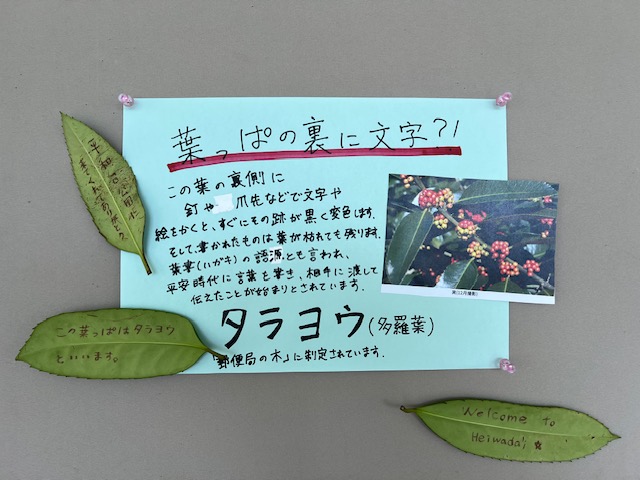 葉っぱの裏に文字?!
この葉の裏側に
釘や 爪先などで文字や
絵をかくと、すぐにその跡が黒く変色します.
そして書かれたものは葉が枯れても残ります.
葉書(ハガキ)の語源とも言われ、
平安時代に言葉を書き、相手に渡して
伝えたことが始まりとされています.
タラヨウ(多羅葉)
「郵便局の木」に制定されています.
この葉っぱはタラヨウ
といいます。
Welcome to
Heiwadai